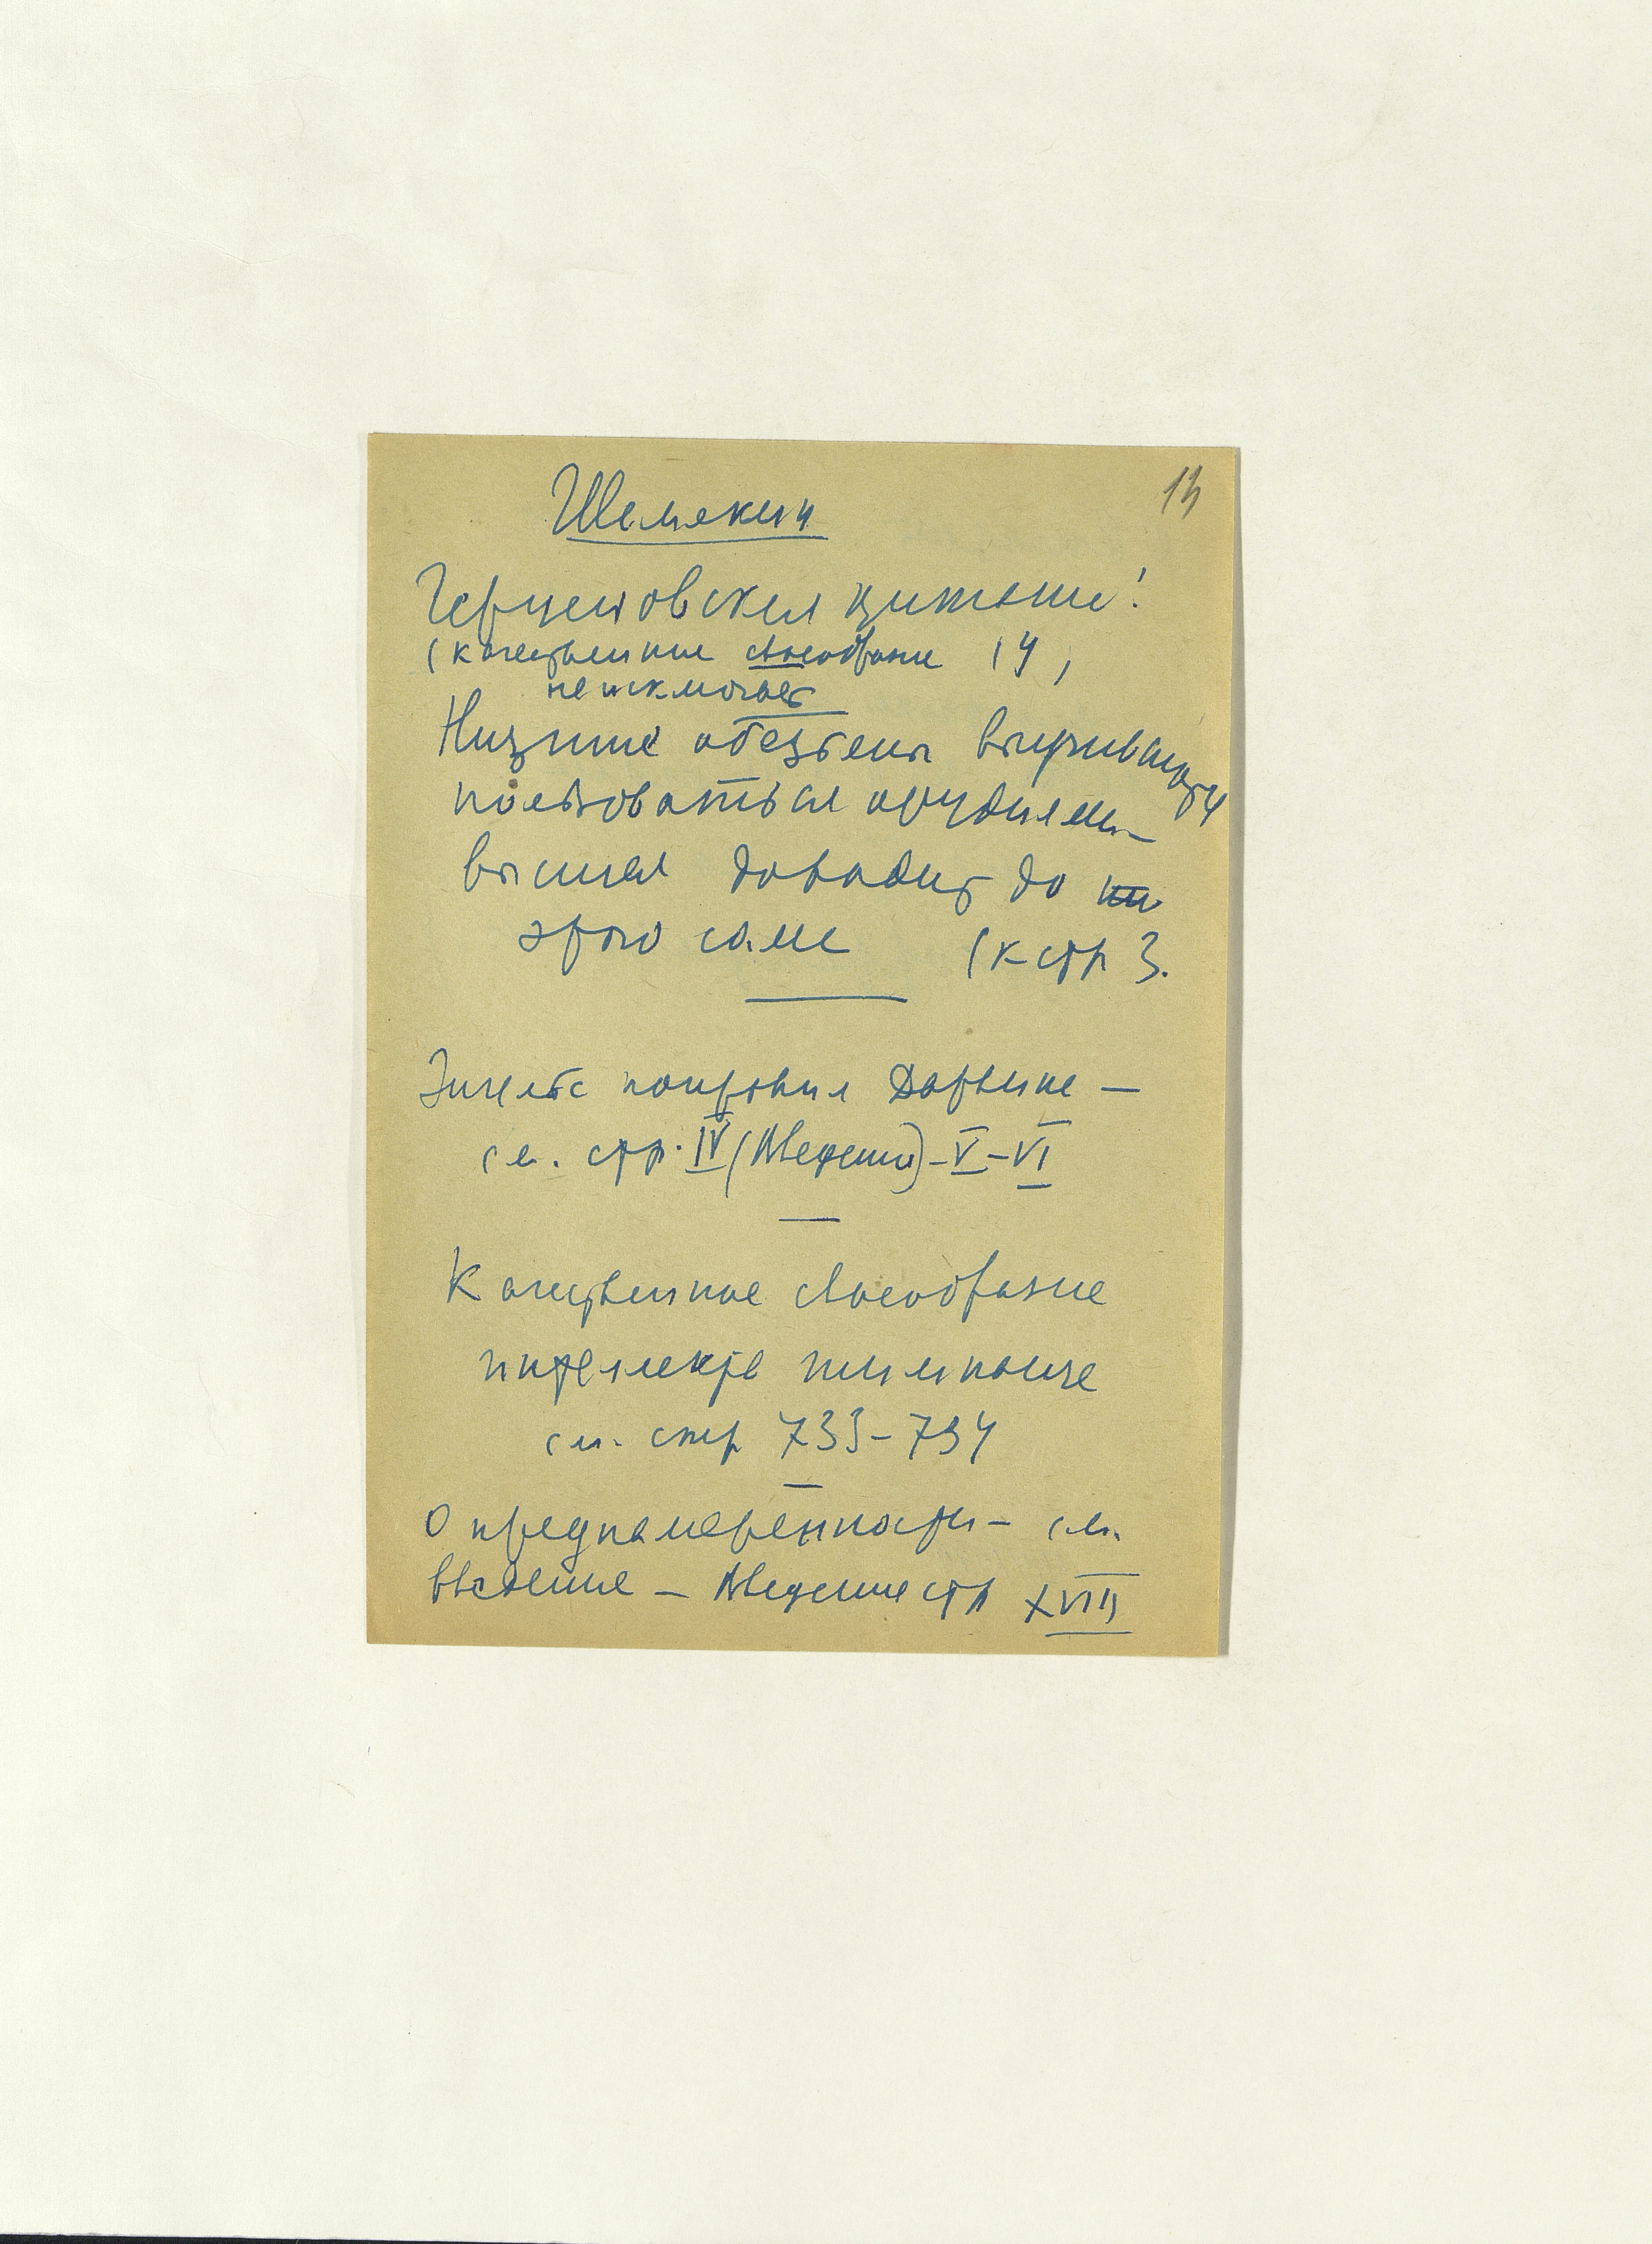 13
Шемякин
Герценовская цитата!
(качественное своеобразие 14,
не исключает
Низшие обезьяны выучиваются
пользоваться орудиями
высшая доходит до
этого сама (к стр 3.
Энгельс поправил Дарвина –
см. стр. IV (Введения) – V – VI
Качественное своеобразие
интеллекта шимпанзе
см. стр 733–734
О преднамеренности – см.
введение – Введение стр XVIII